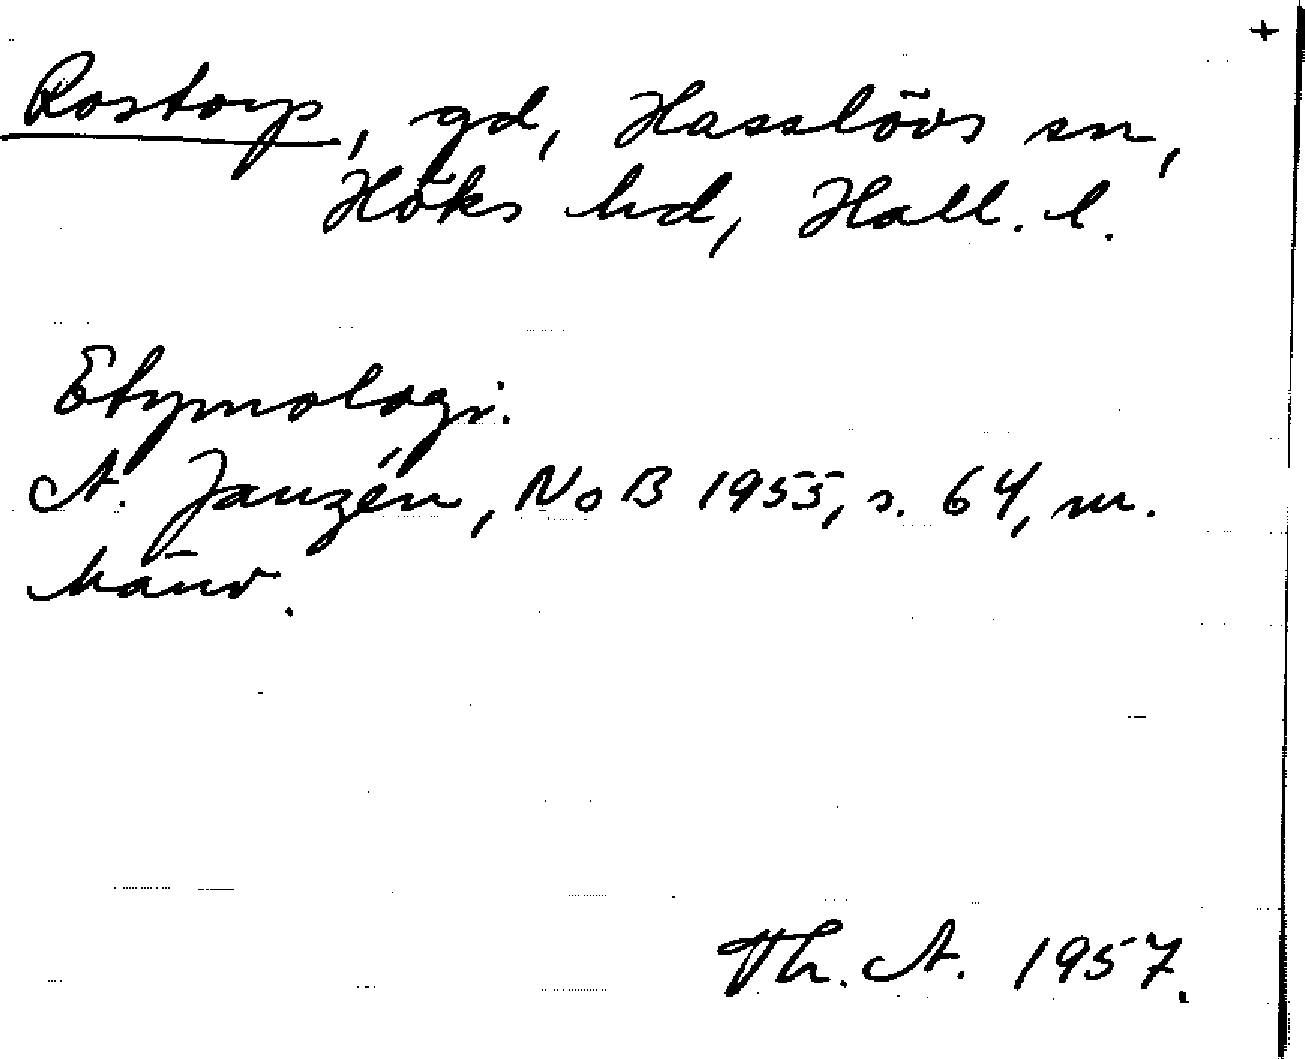 +
Rostorp, gd, Hasslövs sn,
Höks hd, Hall. l.
Etymologi.
A. Janzén, NoB 1955, s. 64, m.
hänv.
Th. A. 1957.